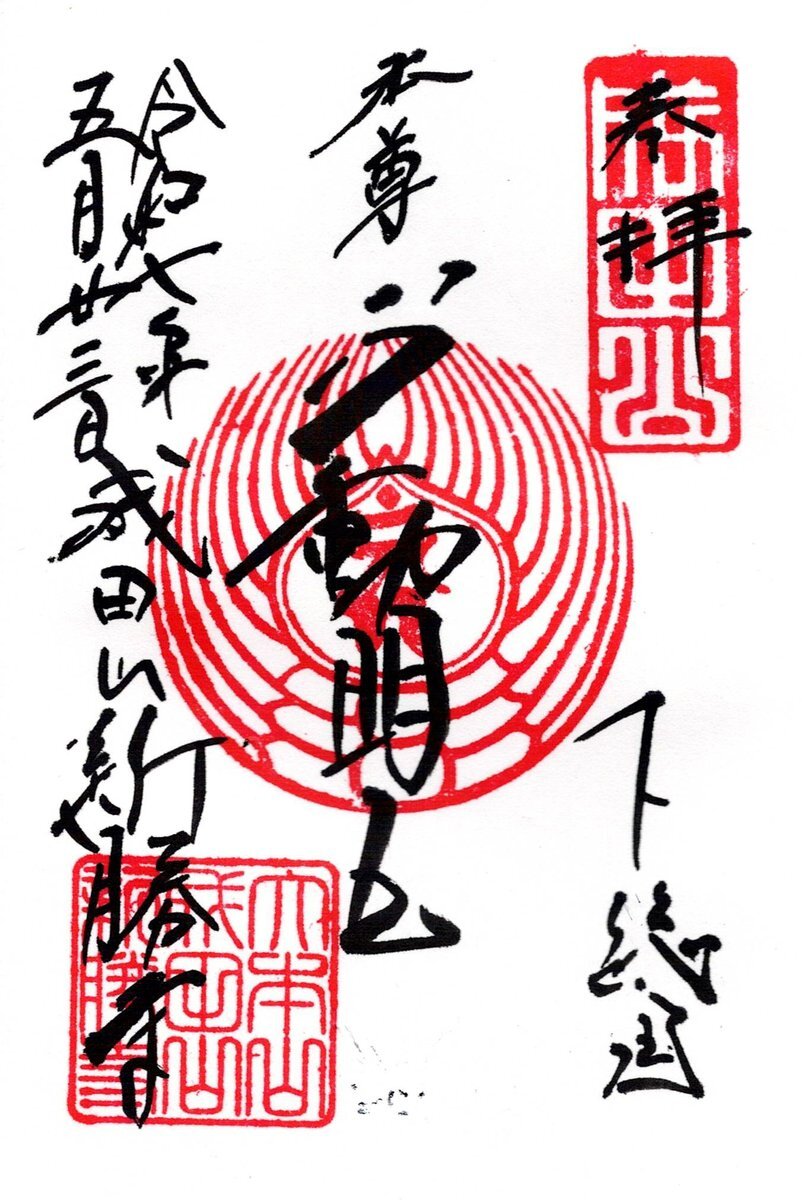 奉拝
下総国
本尊
不動明王
令和七年
五月廿三日
成田山新勝寺
大本山
成田山
新勝寺